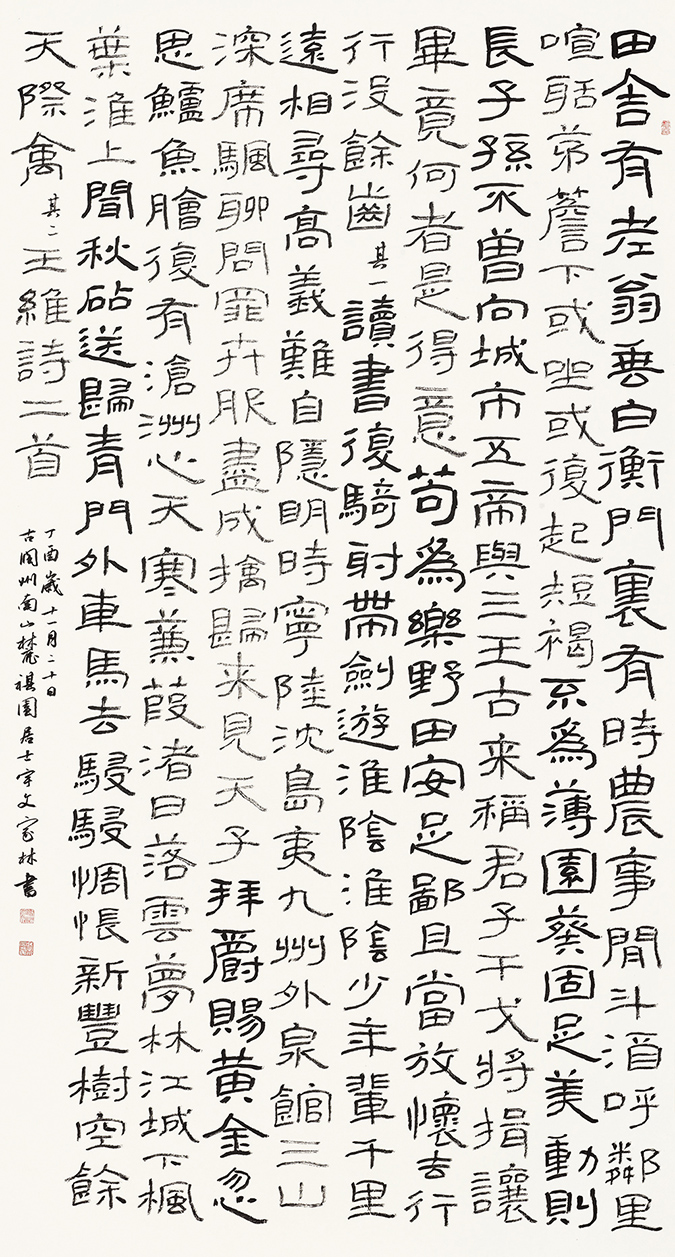 田舍有老翁垂白衡門裏有時農事閒斗酒呼鄰里
喧聒茅簷下或坐或復起短褐不為薄園葵固足美動則
長子孫不曾向城市五帝與三王古來稱君子干戈將揖讓
畢竟何者是得意苟為樂野田安足鄙且當放懷去行
行没餘齒其一讀書復騎射帶劍遊淮陰淮陰少年輩千里
遠相尋高義難自隱明時寧陸沈島夷九州外泉館三山
深席颿聊問罪卉服盡成擒歸來見天子拜爵賜黃金忽
思鱸魚膾復有滄洲心天寒蒹葭渚日落雲夢林江城下楓
葉淮上聞秋砧送歸青門外車馬去駸駸惆悵新豐樹空餘
天際禽其二王維詩二首
丁酉歲十一月二十日
古閬州南山麓祺園居士宇文家林書